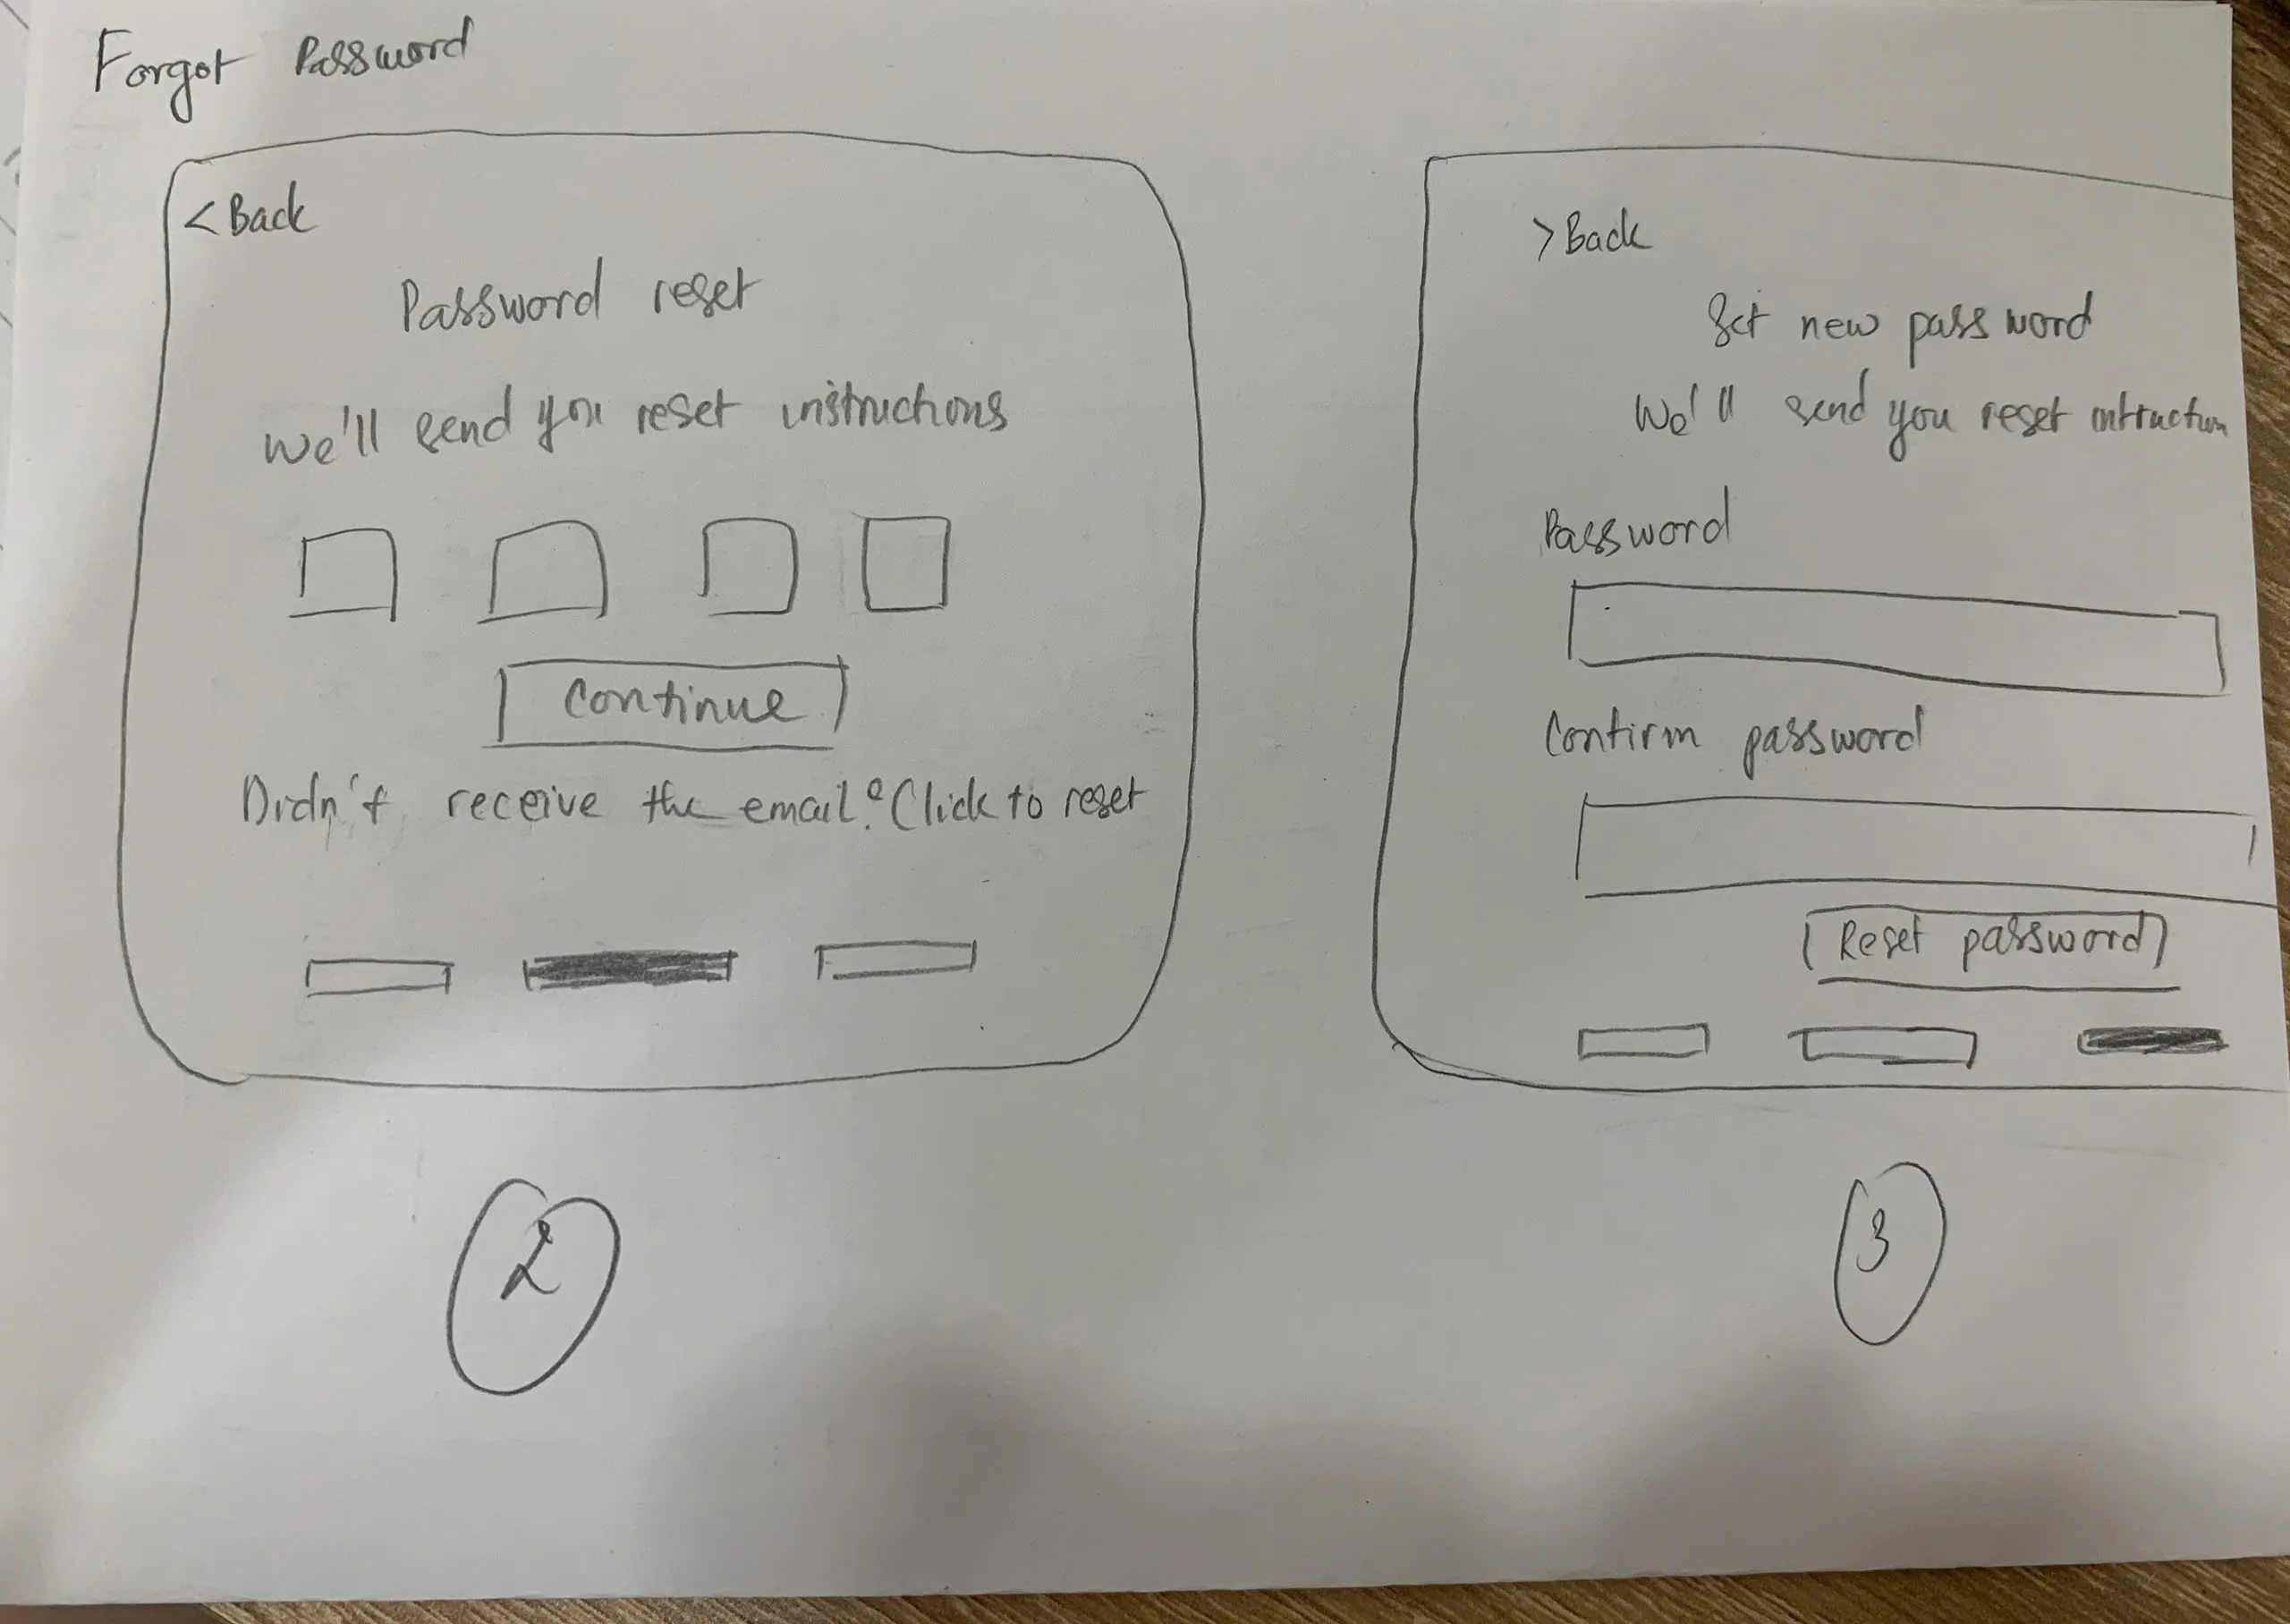 Forgot Password
< Back
Password reset
We'll send you reset instructions
Continue
Didn't receive the email? Click to reset
2
> Back
Set new password
We'll send you reset intruction
Password
Confirm password
Reset password
3